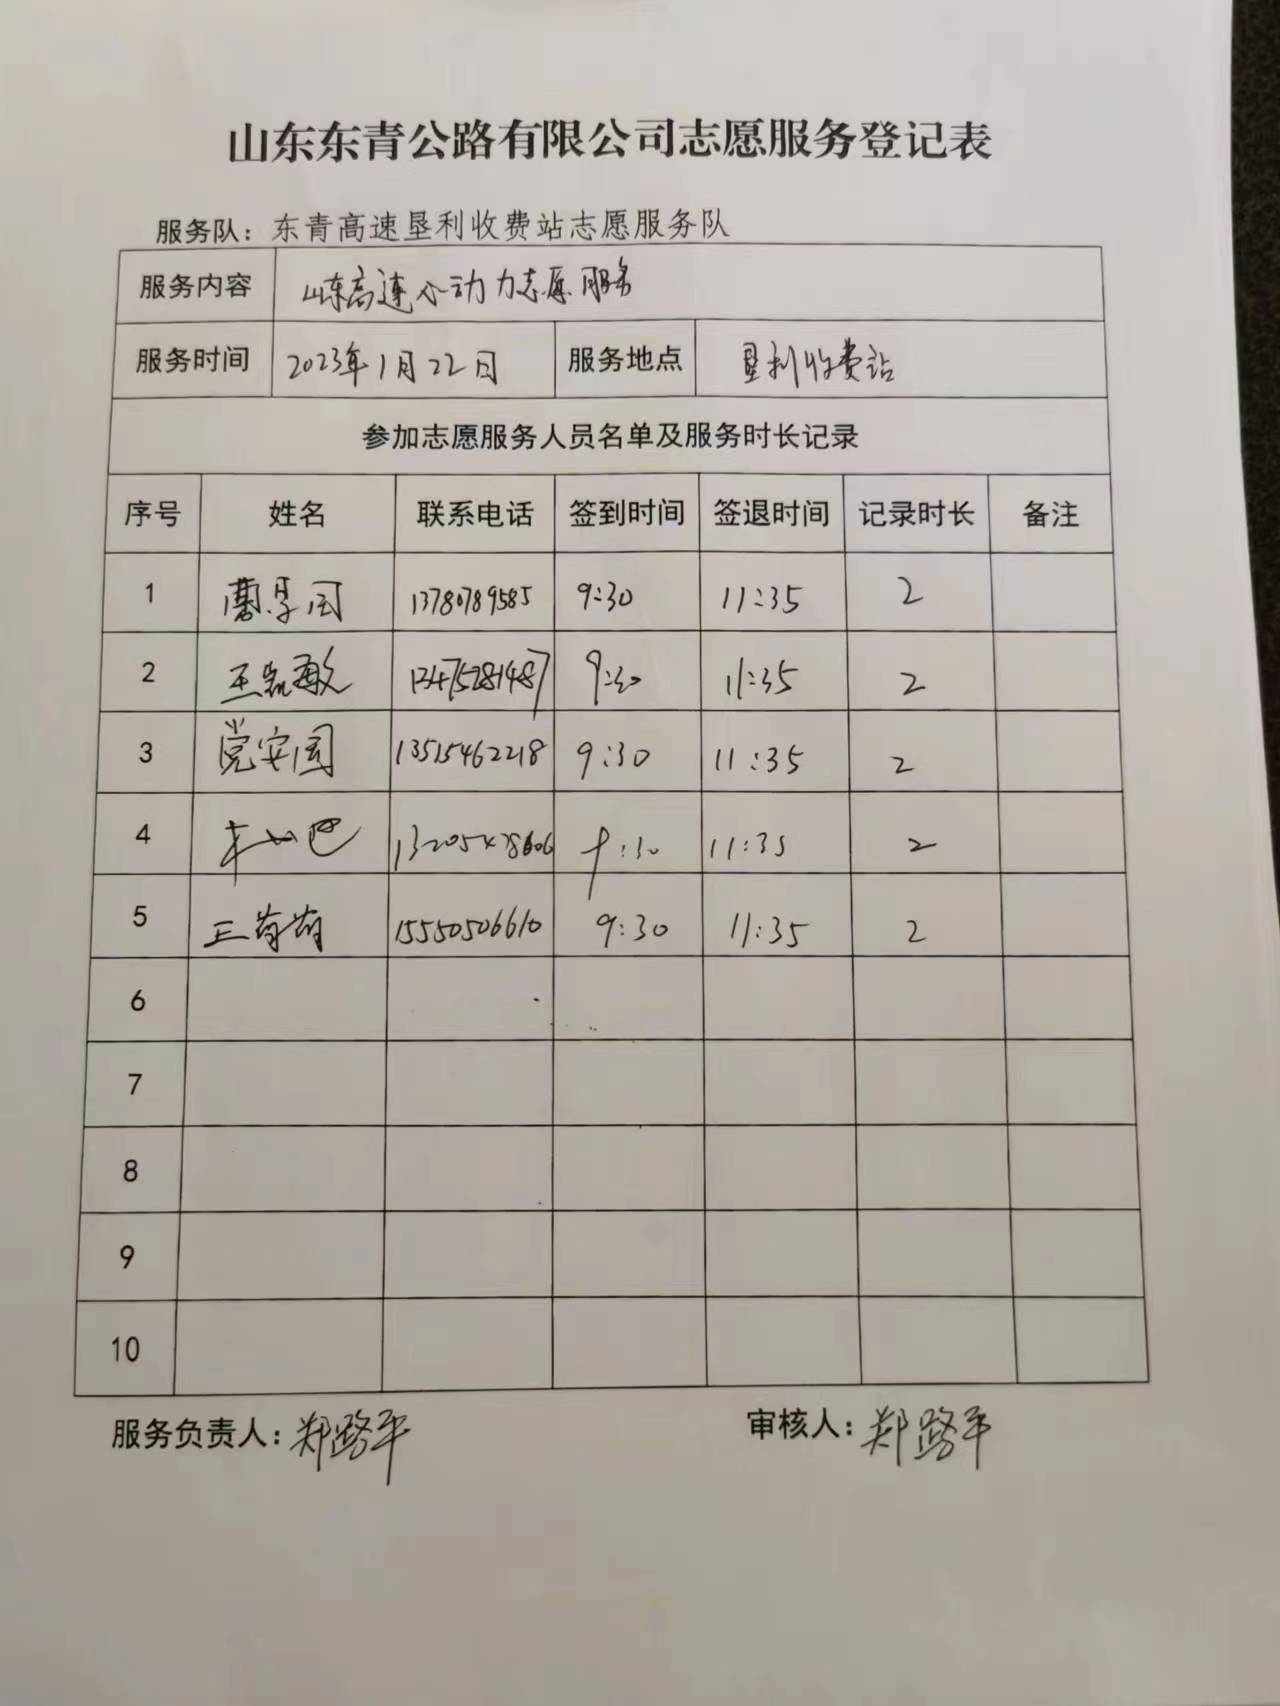 山东东青公路有限公司志愿服务登记表
服务队：东青高速垦利收费站志愿服务队
服务内容 山东高速 动力志愿服务
服务时间 2023年1月22日 服务地点 垦利收费站
参加志愿服务人员名单及服务时长记录
序号 姓名 联系电话 签到时间 签退时间 记录时长 备注
1 13780789585 9:30 11:35 2
2 13475281487 9:30 11:35 2
3 党安国 13515462218 9:30 11:35 2
4 9:30 11:35 2
5 15550506610 9:30 11:35 2
6
7
8
9
10
服务负责人：郑路平 审核人：郑路平